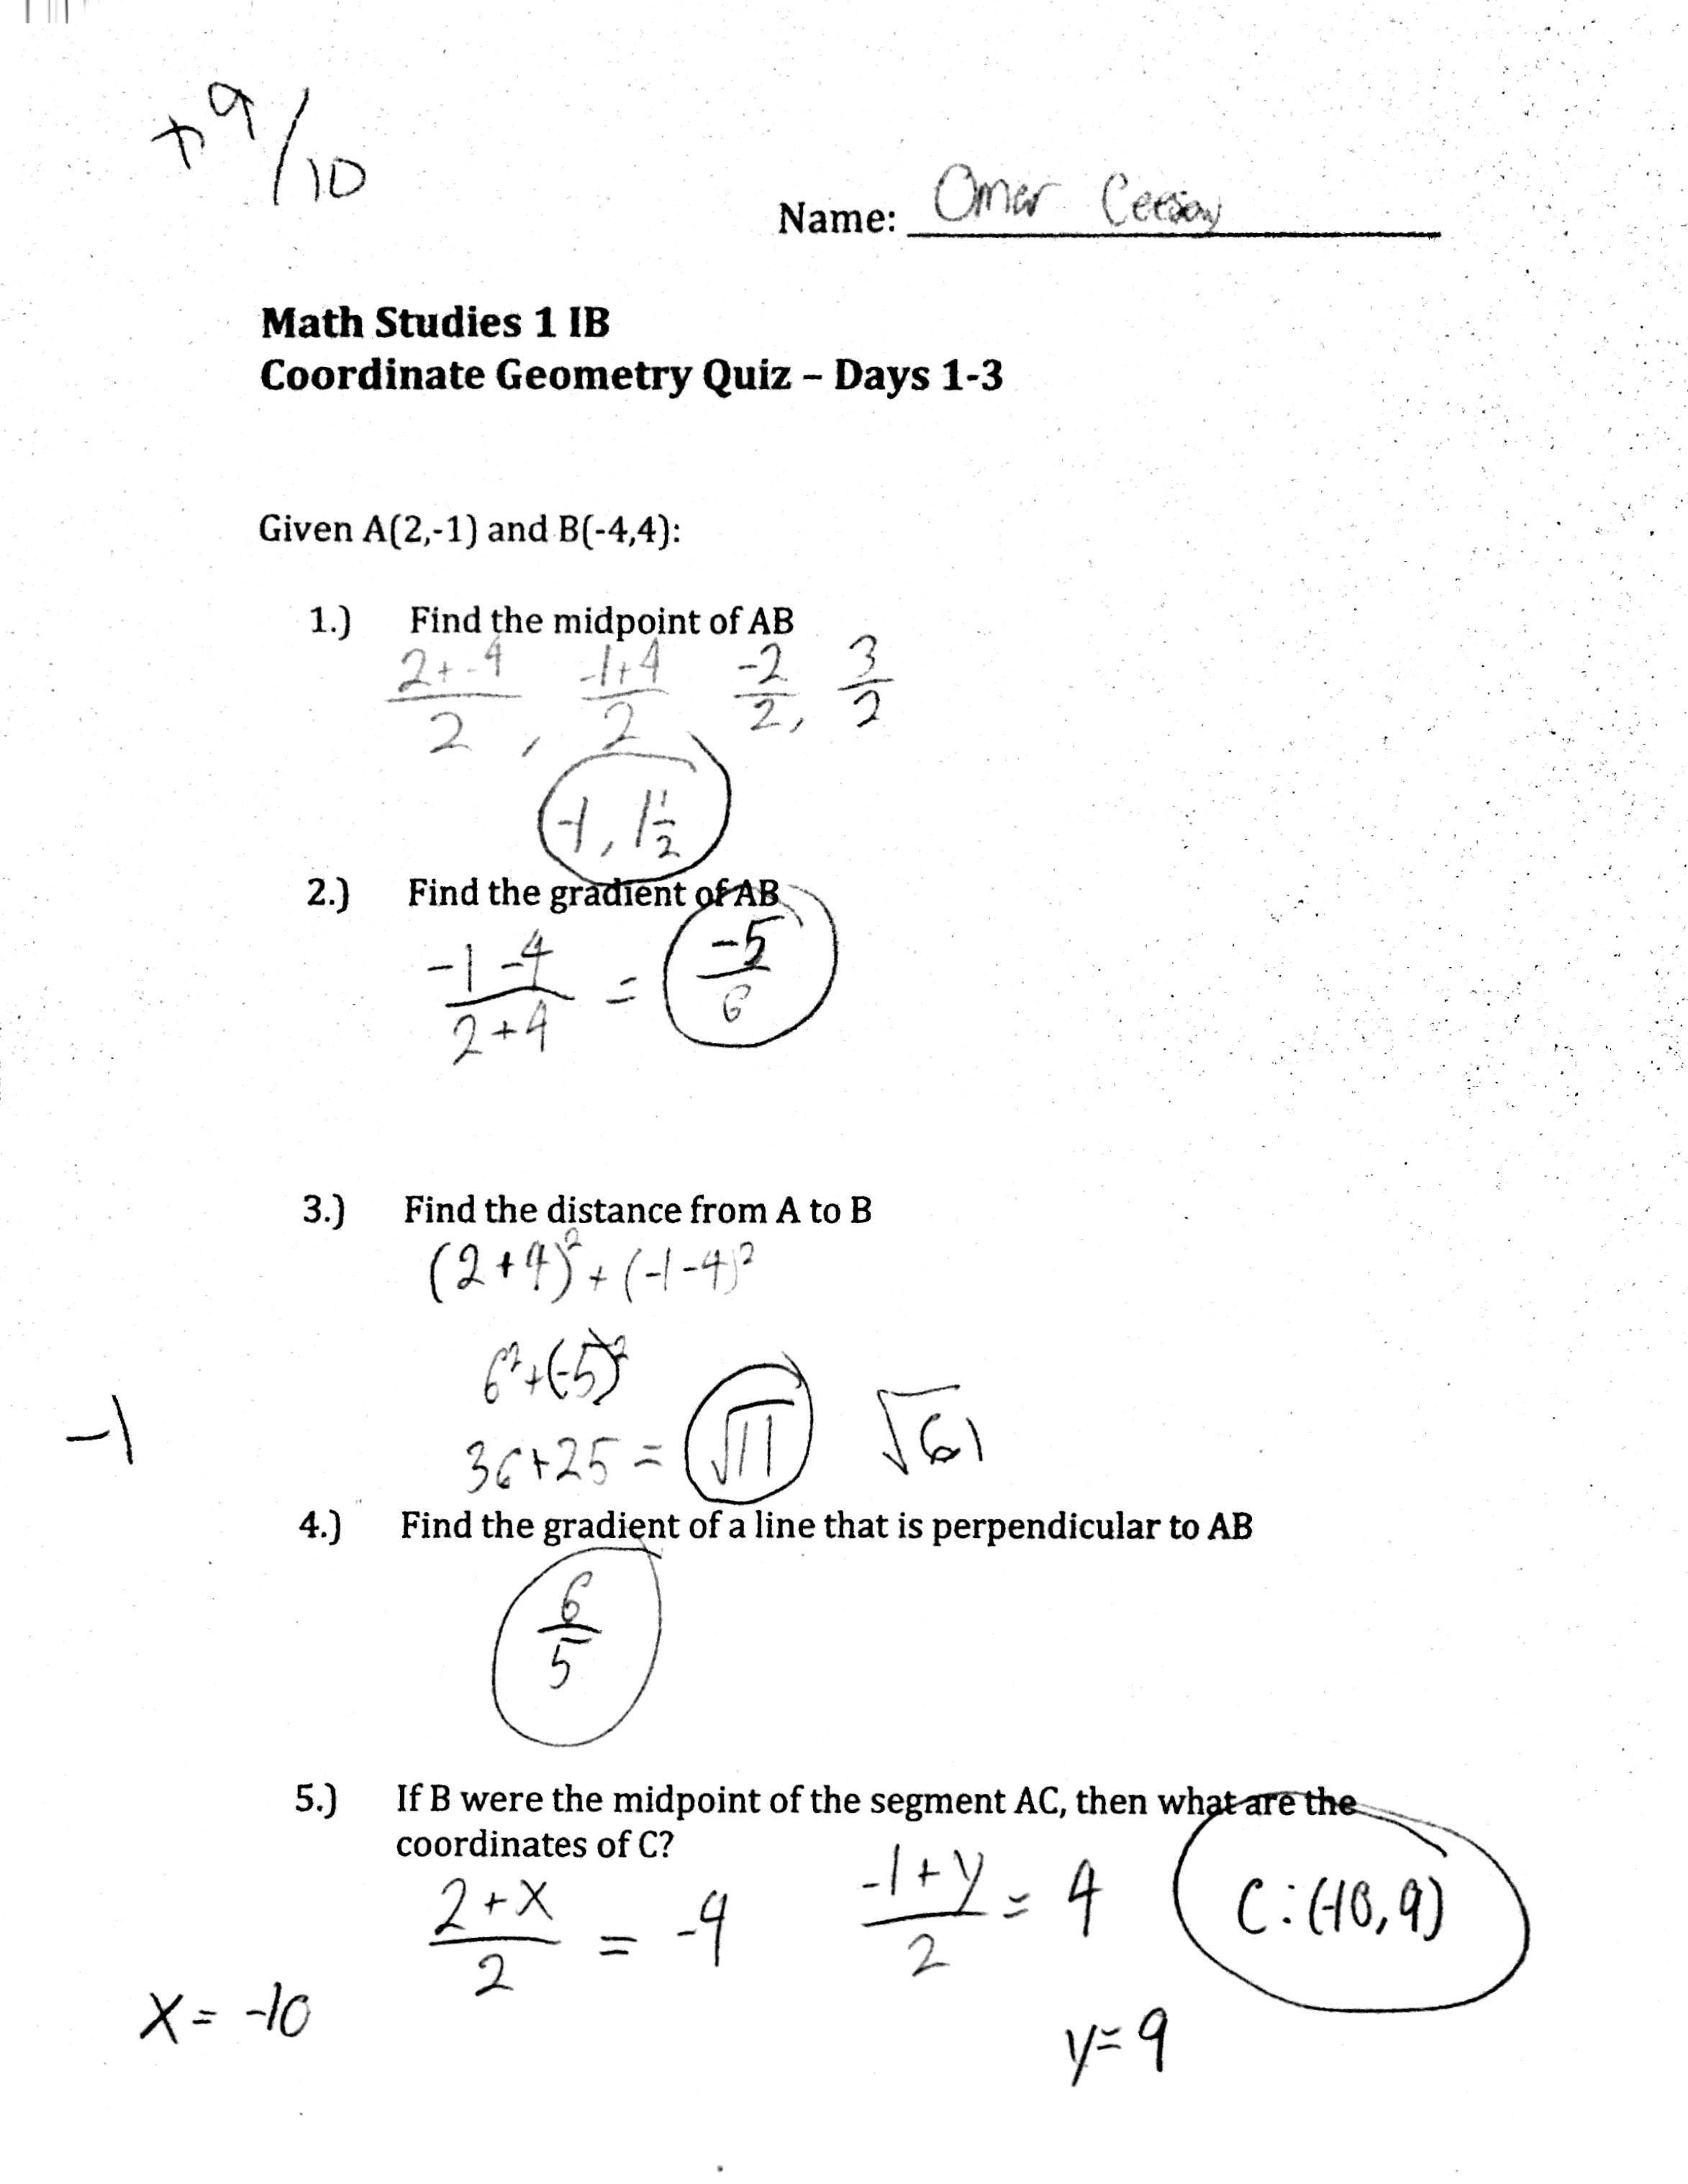 +9/10
Name: Omar Ceesay
Math Studies 1 IB
Coordinate Geometry Quiz – Days 1-3
Given A(2,-1) and B(-4,4):
1.) Find the midpoint of AB
2+-4/2 , -1+4/2 -2/2, 3/2
-1, 1 1/2
2.) Find the gradient of AB
-1-4/2+4 = -5/6
3.) Find the distance from A to B
(2+4)² + (-1-4)²
6²+(-5)²
-1 36+25 = √11 √61
4.) Find the gradient of a line that is perpendicular to AB
6/5
5.) If B were the midpoint of the segment AC, then what are the
coordinates of C?
2+x/2 = -4 -1+y/2 = 4 C:(-10,9)
x = -10 y=9